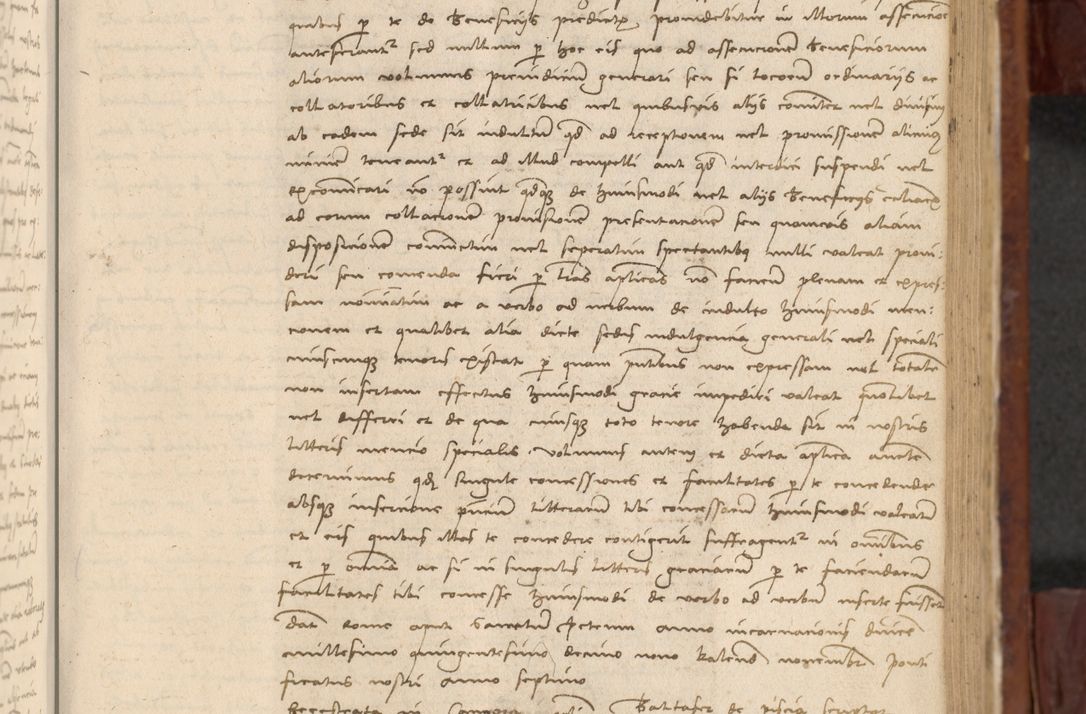 quibus p te de beneficijs predictis, prouidebitur in illorum assecucione
anteferantr sed nullum p hoc eis quo ad assecucionem beneficiorum
aliorum volumus preiudiciu generari seu si locorum ordinarijs ac
collatoribus et collatricibus vel quibusuis alijs comiter vel diuisim
ab eadem sede sit indultum qd ad receptionem vel prouisionem alicuius
minime teneantr et ad illud compelli aut qd interdici suspendi vel
excomunicari no possint qdqz de huiusmodi vel alijs beneficijs
ad eorum collacionem prouisionem presentacionem seu quamuis aliam
disposicionem coniunctim vel separatim spectantibus nulli valeat proui:
deri seu comenda fieri p lras aplicas no facien plenam et expres:
sam nominatim ac de verbo ad verbum de indulto huiusmodi men:
cionem et qualibet alia dicte sedis indulgencia generali vel speciali
cuiuscumqz tenoris existat p quam pntibus non expressam vel totalr
non insertam effectus huiusmodi gracie impediri valeat quolibet
vel differri et de qua cuiusqz toto tenore habenda sit in nostris
litteris mencio specialis. Volumus autem et dicta aplica aucte
decernimus qd singule concessiones et facultates p te concedende
absqz insercione pncium litterarum tibi concessarum huiusmodi valeant
et eis quibus illas te concedere contigerit suffragentr in omnibus
et p omnia ac si in singulis litteris graciarum p te faciendarum
facultates tibi concesse huiusmodi de verbo ad verbum inserte fuissent
Dat Rome apud Sanctum Petrum anno incarnacionis dnice
millesimo quingentesimo decimo nono kalend nouembr ponti
ficatus nostri anno septimo
Registrata in Camera aplica Baltasar de piscia